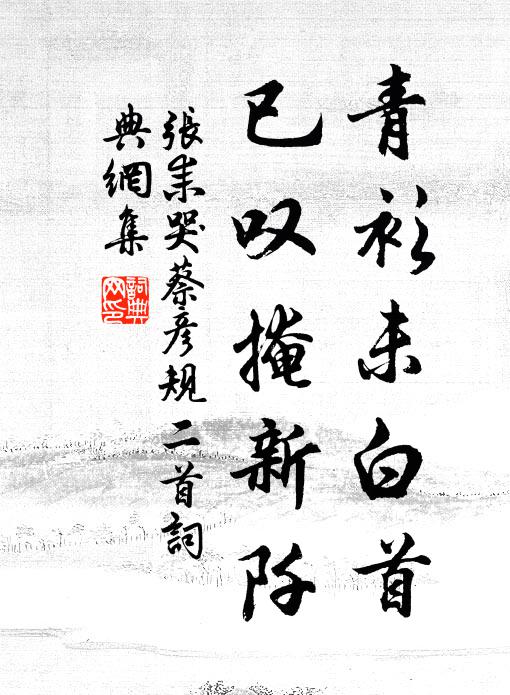 青衫未白首
已叹掩新阡
張耒哭蔡彥規二首詞
典網集
詞典
网印